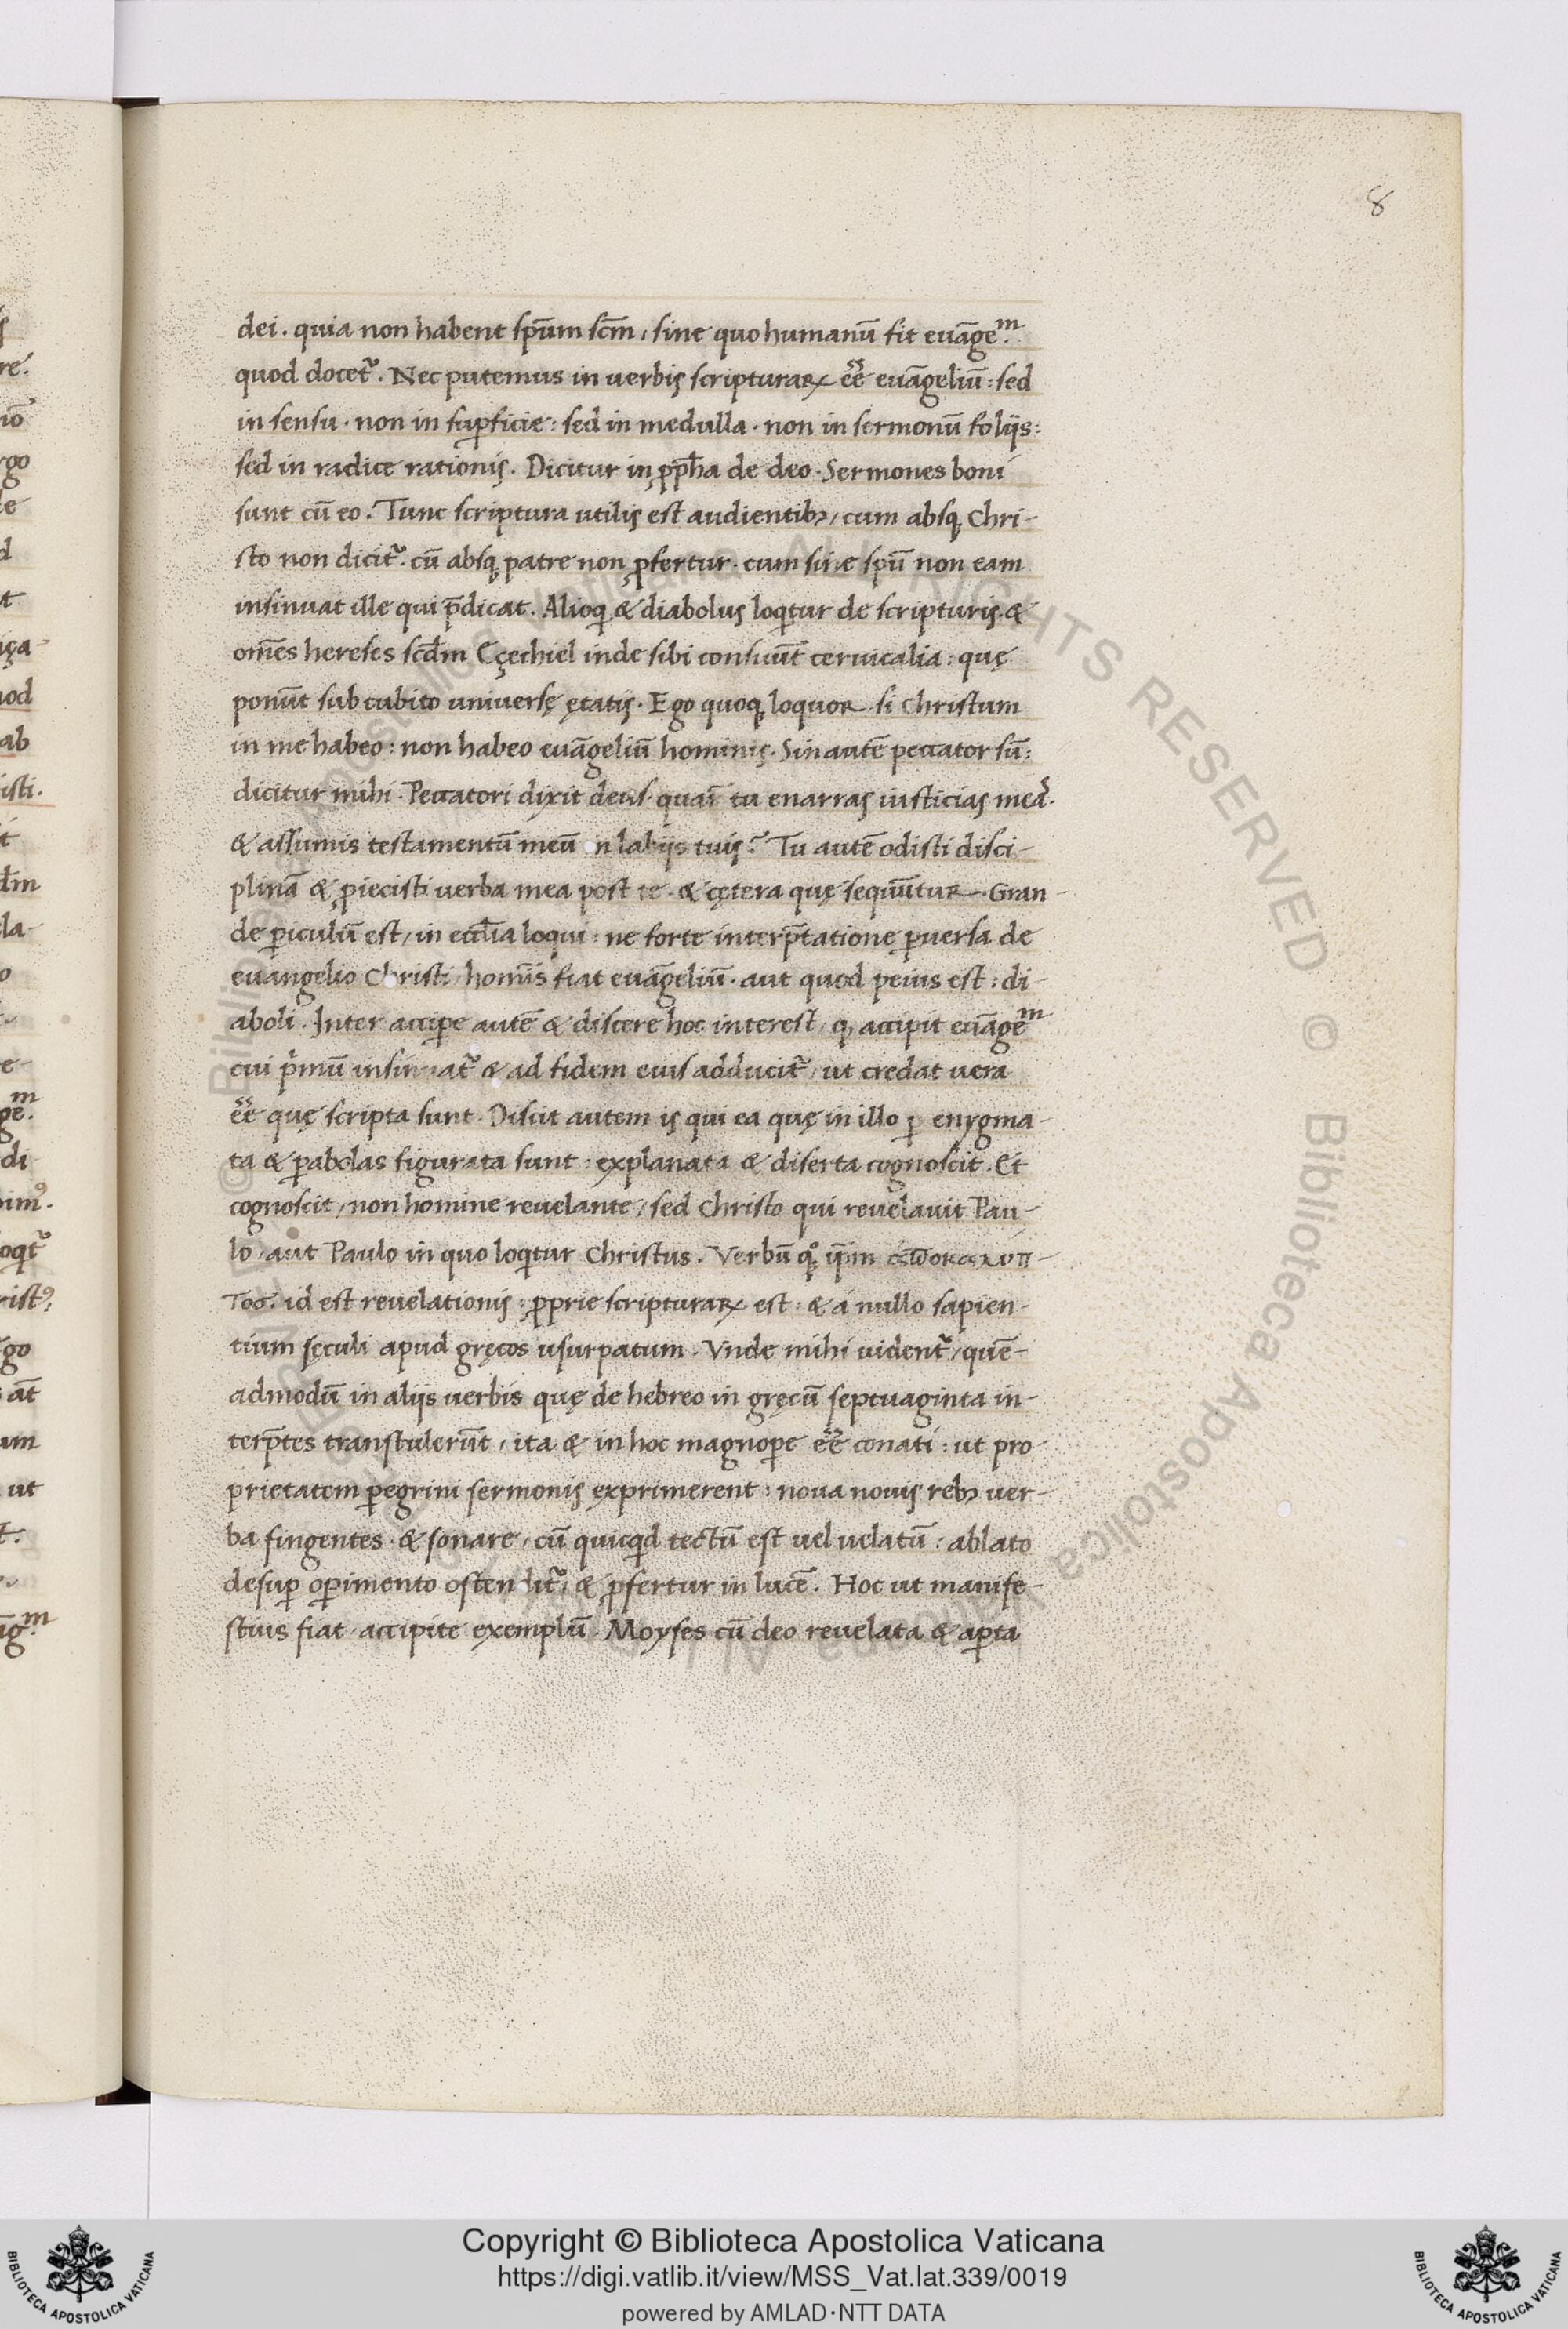 8
dei. quia non habent sp̄um sc̄m, sine quo humanū fit euāgeᵐ.
quod docet᷑. Nec putemus in uerbis scripturaꝝ ēē euāgeliū: sed
in sensu. non in suꝑficie: sed in medulla. non in sermonū folijs:
sed in radice rationis. Dicitur in ꝓpħa de deo. Sermones boni
sunt cū eo. Tunc scriptura utilis est audientibꝫ, cum absꝗ Chri-
sto non dicit᷑. cū absꝗ patre non ꝓfertur. cum sine spū non eam
insinuat ille qui p̄dicat. Alioꝗ & diabolus loqͥtur de scripturis. &
om̄es hereses scd̄m Eçechiel inde sibi consuūt ceruicalia: quę
ponūt sub cubito uniuersę ętatis. Ego quoꝗ loquor si Christum
in me habeo: non habeo euāgeliū hominis. Sin autē peccator sū:
dicitur mihi. Peccatori dixit deus. quař tu enarras iusticias meaˢ.
& assumis testamentū meū in labijs tuis? Tu autē odisti disci-
plinā & ꝓiecisti uerba mea post te. & cętera quę sequūtur. Gran-
de ꝑiculū est, in eccl̄ia loqui: ne forte interp̄tatione ꝑuersa de
euangelio Christi, homīs fiat euāgeliū. aut quod peius est: di-
aboli. Inter acciꝑe autē & discere hoc interest, ꝙ accipit euāgeᵐ
cui pͥmū insinuat᷑ & ad fidem eius adducit᷑, ut credat uera
ēē quę scripta sunt. Discit autem is qui ea quę in illo ꝑ enygma-
ta & ꝑabolas figurata sunt: explanata & diserta cognoscit. Et
cognoscit, non homine reuelante, sed Christo qui reuelauit Pau-
lo, aut Paulo in quo loqͥtur Christus. Verbū
Tos. id est reuelationis: ꝓprie scripturaꝝ est: & a nullo sapien-
tium sęculi apud gręcos usurpatum. Vnde mihi uident᷑, quē-
admodū in alijs uerbis quę de hebreo in gręcū septuaginta in-
terp̄tes transtulerūt, ita & in hoc magnoꝑe ēē conati: ut pro-
prietatem ꝑegrini sermonis exprimerent: noua nouis rebꝫ uer-
ba fingentes. & sonare, cū quicqͥd tectū est uel uelatū: ablato
desuꝑ oꝑimento ostendit᷑, & ꝓfertur in lucē. Hoc ut manife-
stius fiat, accipite exemplū. Moyses cū deo reuelata & aꝑta
Copyright © Biblioteca Apostolica Vaticana
https://digi.vatlib.it/view/MSS_Vat.lat.339/0019
powered by AMLAD·NTT DATA
BIBLIOTECA APOSTOLICA VATICANA
BIBLIOTECA APOSTOLICA VATICANA